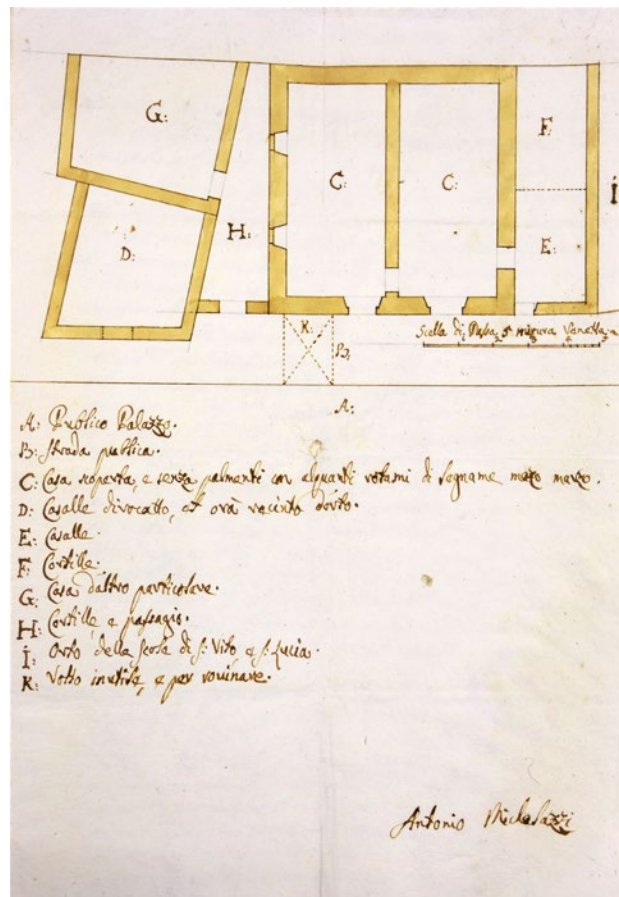 G:
F:
C:
C:
İ
H:
D:
E:
K:
B:
Scalla di Passa 5 misura Veneta
A:
A: Publico Palazzo.
B: Strada publica.
C: Casa scoperta, e senza palmenti con alquanti rotami di legname mezo marzo.
D: Casalle divocatto, et ora recinto d'orto.
E: Casalle.
F: Cortille.
G: Casa d'altro particolare.
H: Cortille, e passagio.
İ: Orto della Scola di S: Vito e S: Lucia.
K: Volto inutile, e per rovinare.
Antonio